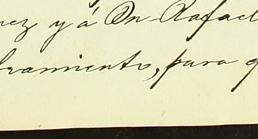 rez y á Dn Rafael
bramiento, para q